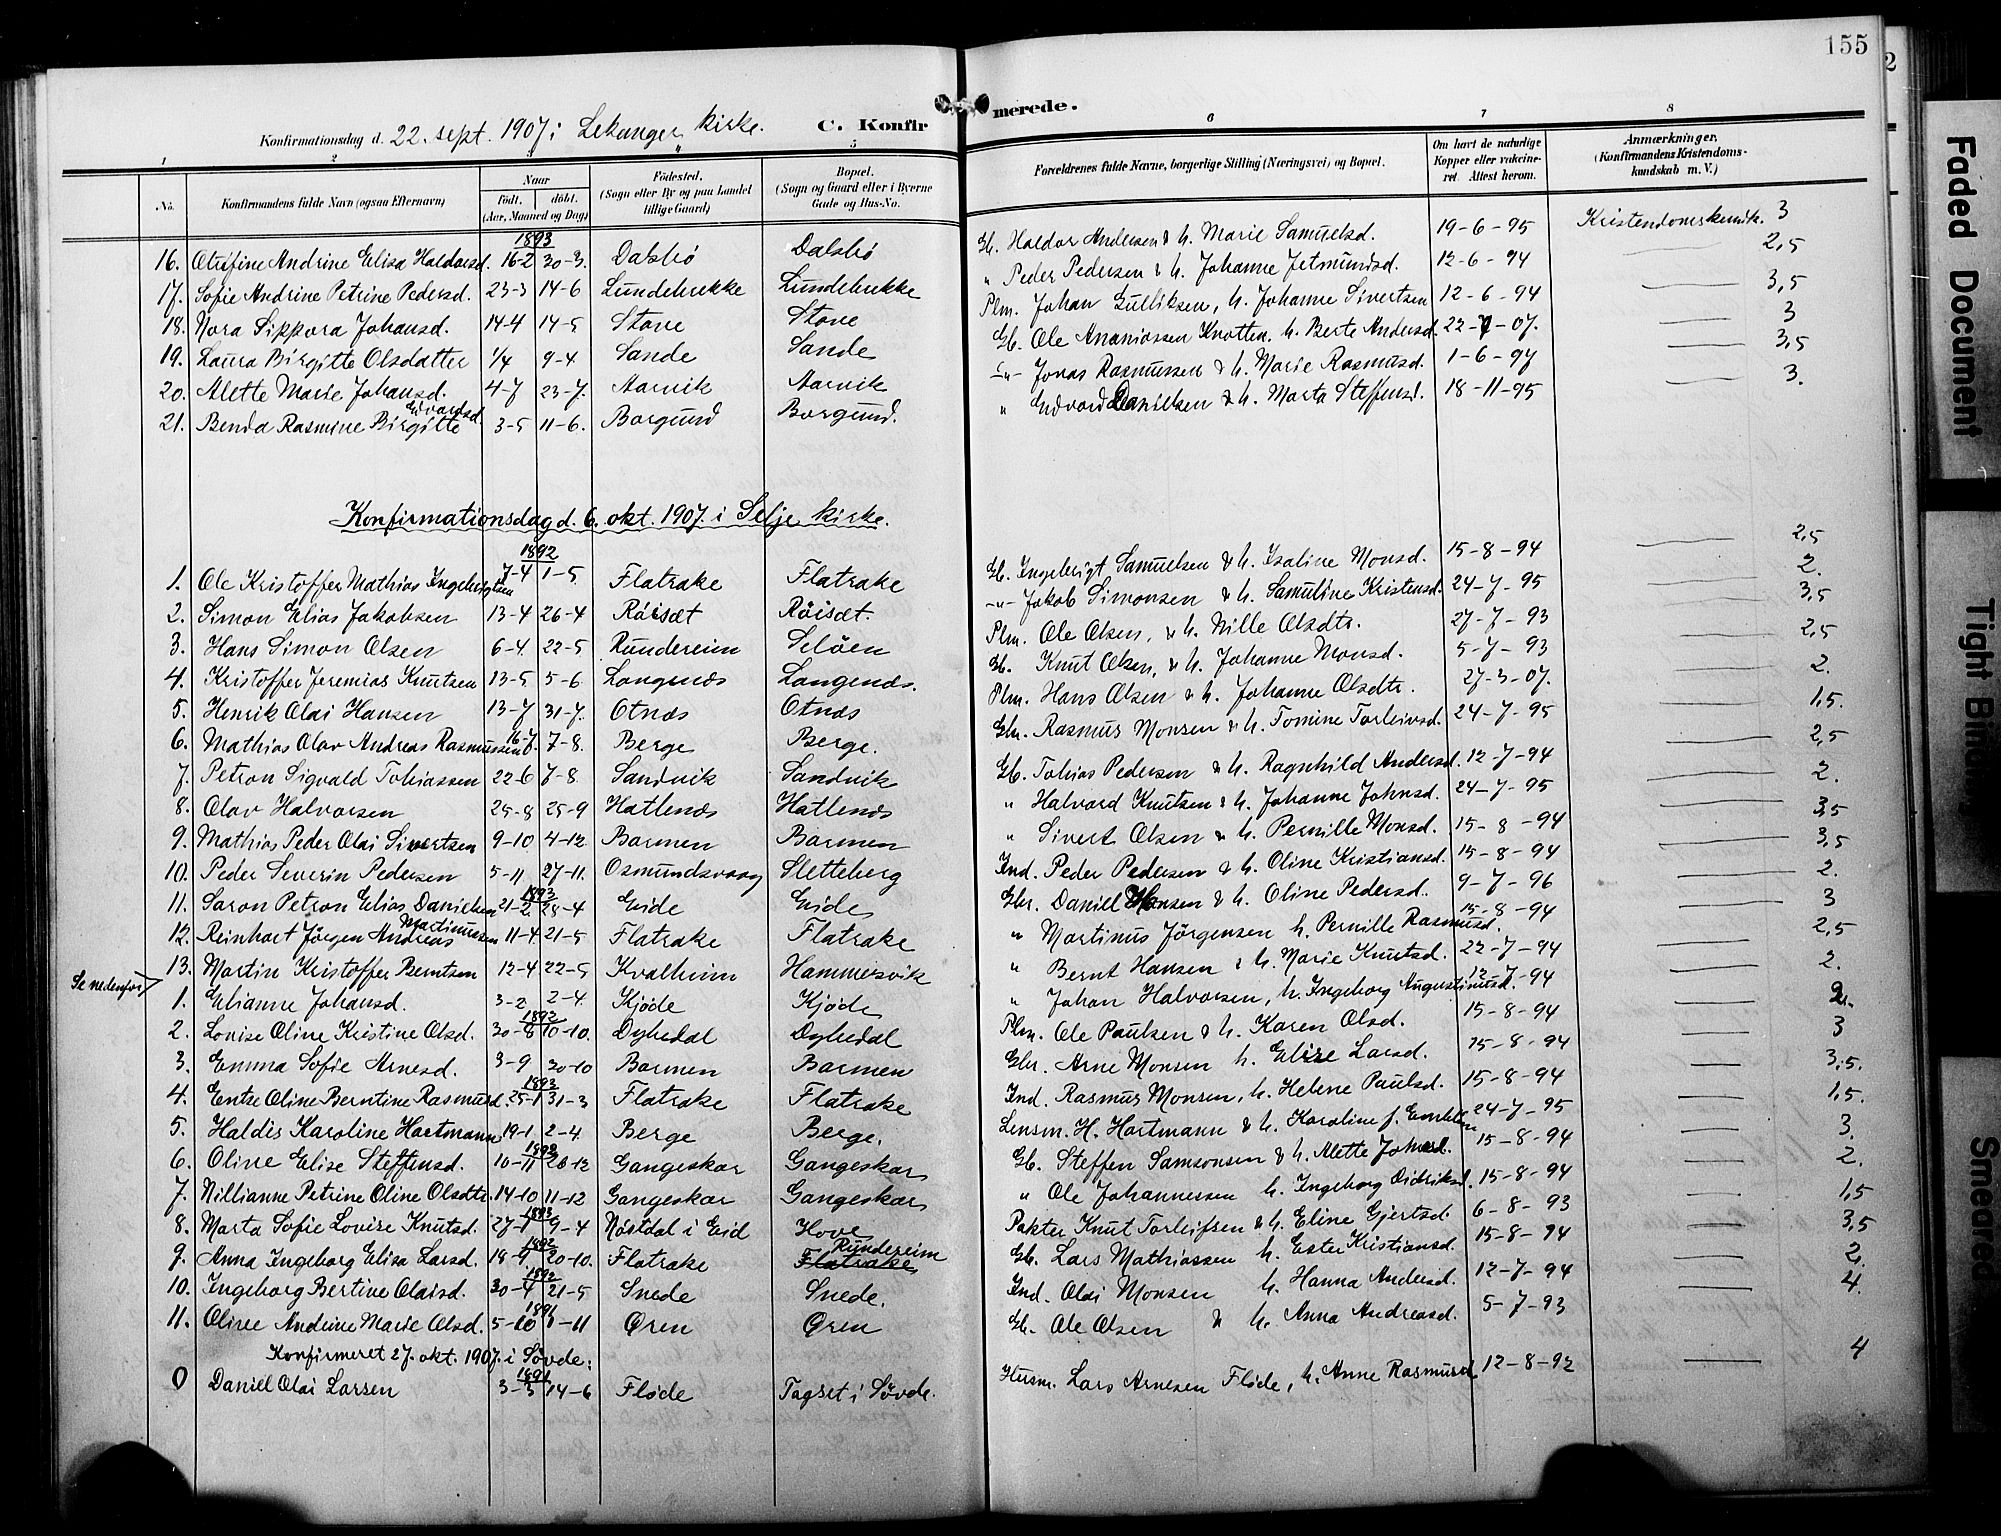 155
2
C. Konfirmerede.
Konfirmationsdag d. 22. sept. 1907 i Lekanger kirke.
1 2 3 5 6 7 8
No. Konfirmandens fulde Navn (ogsaa Efternavn) Naar født. døbt. (Aar, Maaned og Dag) Födested. (Sogn eller By og paa Landet tillige Gaard) Bopæl. (Sogn og Gaard eller i Byerne Gade og Hus-No. Forældrenes fulde Navne, borgerlige Stilling (Næringsvei) og Bopæl. Om havt de naturlige Kopper eller vakcineret. Attest herom. Anmærkninger, (Konfirmandens Kristendomskundskab m. V.)
1893
16. Olufine Andrine Elisa Haldorsd. 16-2 30-3. Dalsbø Dalsbø Gb. Haldor Andersen & h. Marie Samuelsd. 19-6-95 Kristendomskundsk. 3
17. Sofie Andrine Petrine Pedersd. 23-3 14-6 Lundebrekke Lundebrekke " Peder Pedersen & h. Johanne Jetmundsd. 12-6-94 2,5
18. Nora Sippora Johansd. 14-4 14-5 Stove Stove Plm. Johan Gulliksen, h. Johanne Sivertsen 12-6-94 3,5
19. Laura Birgitte Olsdatter 1/4 9-4 Sande Sande Gb. Ole Ananiassen Knotten h. Berte Andersd. 22-7-07. 3
20. Alette Marie Johansd. 4-7 23-7. Aarvik Aarvik -"- Jonas Rasmussen & h. Marie Rasmusd. 1-6-97 3,5
21. Benda Rasmine Birgitte Edvardsd. 3-5 11-6. Borgund Borgund. " Edvard Danielsen & h. Marta Steffensd. 18-11-95 3.
Konfirmationsdag d. 6. okt. 1907. i Selje kirke.
1892
1. Ole Kristoffer Mathias Ingebrigtsen 7-4 1-5 Flatrake Flatrake Gb. Ingebrigt Samuelsen & h. Isaline Monsd. 15-8-94 2,5
2. Simon Elias Jakobsen 13-4 26-4 Röisæt Röisæt. -"- Jakob Simonsen & h. Samuline Kristensd. 24-7-95 2.
3. Hans Simon Olsen 6-4 22-5 Rundereim Selöen Plm. Ole Olsen, & h. Nille Olsdtr. 27-7-93 3,5
4. Kristoffer Jeremias Knutsen 13-5 5-6. Langenæs Langenæs. Gb. Knut Olsen, & h. Johanne Monsd. 5-7-93 2,5
5. Henrik Olai Hansen 13-7 31-7. Otnæs Otnæs Plm. Hans Olsen & h. Johanne Olsdtr. 27-3-07. 2.
6. Mathias Olav Andreas Rasmussen 16-7. 7-8. Berge Berge. Gbr. Rasmus Monsen & h. Tomine Torleivsd. 24-7-95 1,5.
7. Petron Sigvald Tobiassen 22-6 7-8 Sandvik Sandvik Gb. Tobias Pedersen & h. Ragnhild Andersd. 12-7-94 2,5
8. Olav Halvorsen 25-8 25-9 Hatlenæs Hatlenæs " Halvard Knutsen & h. Johanne Johnsd. 24-7-95 2.
9. Mathias Peder Olai Sivertsen 9-10 4-12. Barmen Barmen " Sivert Olsen & h. Pernille Monsd. 15-8-94 3,5
10. Peder Severin Pedersen 5-11 27-11. Osmundsvaag Sletteberg Ind. Peder Pedersen & h. Oline Kristiansd. 15-8-94 3,5
1893
11. Saron Petron Elias Danielsen 21-2 28-4 Eide Eide Gbr. Daniel Hansen & h. Oline Pedersd. 9-7-96 2.
12. Reinhart Jörgen Andreas Martinussen 11-4 21-5 Flatrake Flatrake " Martinus Jörgensen h. Pernille Rasmusd. 15-8-94 3
13. Martin Kristoffer Berntsen 12-4 22-5 Kvalheim Hammersvik " Bernt Hansen & h. Marie Knutsd. 22-7-94 2,5
Se nedenfor)
1. Elianne Johansd. 3-2 2-4. Kjöde Kjöde " Johan Halvorsen, h. Ingeborg Augustinusd. 12-7-94 2.
1892
2. Lovise Oline Kristine Olsd. 30-8 10-10. Dybedal Dybedal Plm. Ole Paulsen & h. Karen Olsd. 15-8-94 2.
3. Emma Sofie Arnesd. 3-9 30-10 Barmen Barmen Gbr. Arne Monsen h. Elise Larsd. 15-8-94 3
1893
4. Entse Oline Berntine Rasmusd. 25-1 31-3 Flatrake Flatrake Ind. Rasmus Monsen, h. Helene Paulsd. 15-8-94 3,5.
5. Haldis Karoline Hartmann 19-1 2-4. Berge Berge. Lensm. H. Hartmann & h. Karoline f. Emblem 24-7-95 1,5.
1892
6. Oline Elise Steffensd. 10-11 26-12 Gangeskar Gangeskar Gb. Steffen Samsonsen & h. Alette Johnsd. 15-8-94 3.
7. Nillianne Petrine Oline Olsdtr. 14-10 11-12 Gangeskar Gangeskar " Ole Johannessen h. Ingeborg Didriksd. 15-8-94 2.
1893
8. Marta Sofie Lovise Knutsd. 27-1 9-4 Nøstdal i Eid Hove Pakter Knut Torleifsen & h. Eline Gjertsd. 6-8-93 1,5
1892
9. Anna Ingeborg Elisa Larsd. 18-9. 20-10. Flatrake Flatrake Rundereim Gb. Lars Mathiassen h. Ester Kristiansd. 15-8-94 3,5
1892
10. Ingeborg Bertine Olaisd. 30-4 21-5 Snede Snede. Ind. Olai Monsen h. Hanna Andersd. 12-7-94 2.
1891
11. Oline Andrine Marie Olsd. 5-10 1-11 Øren Øren Gb. Ole Olsen & h. Anna Andreasd. 5-7-93 4.
Konfirmeret 27. okt. 1907. i Sövde:
1891
0 Daniel Olai Larsen 3-3 14-6 Flöde Tagset i Sövde. Husm. Lars Arnesen Flöde, h. Anne Rasmusd. 12-8-92 4
Faded Document
Tight Binding
Smeared